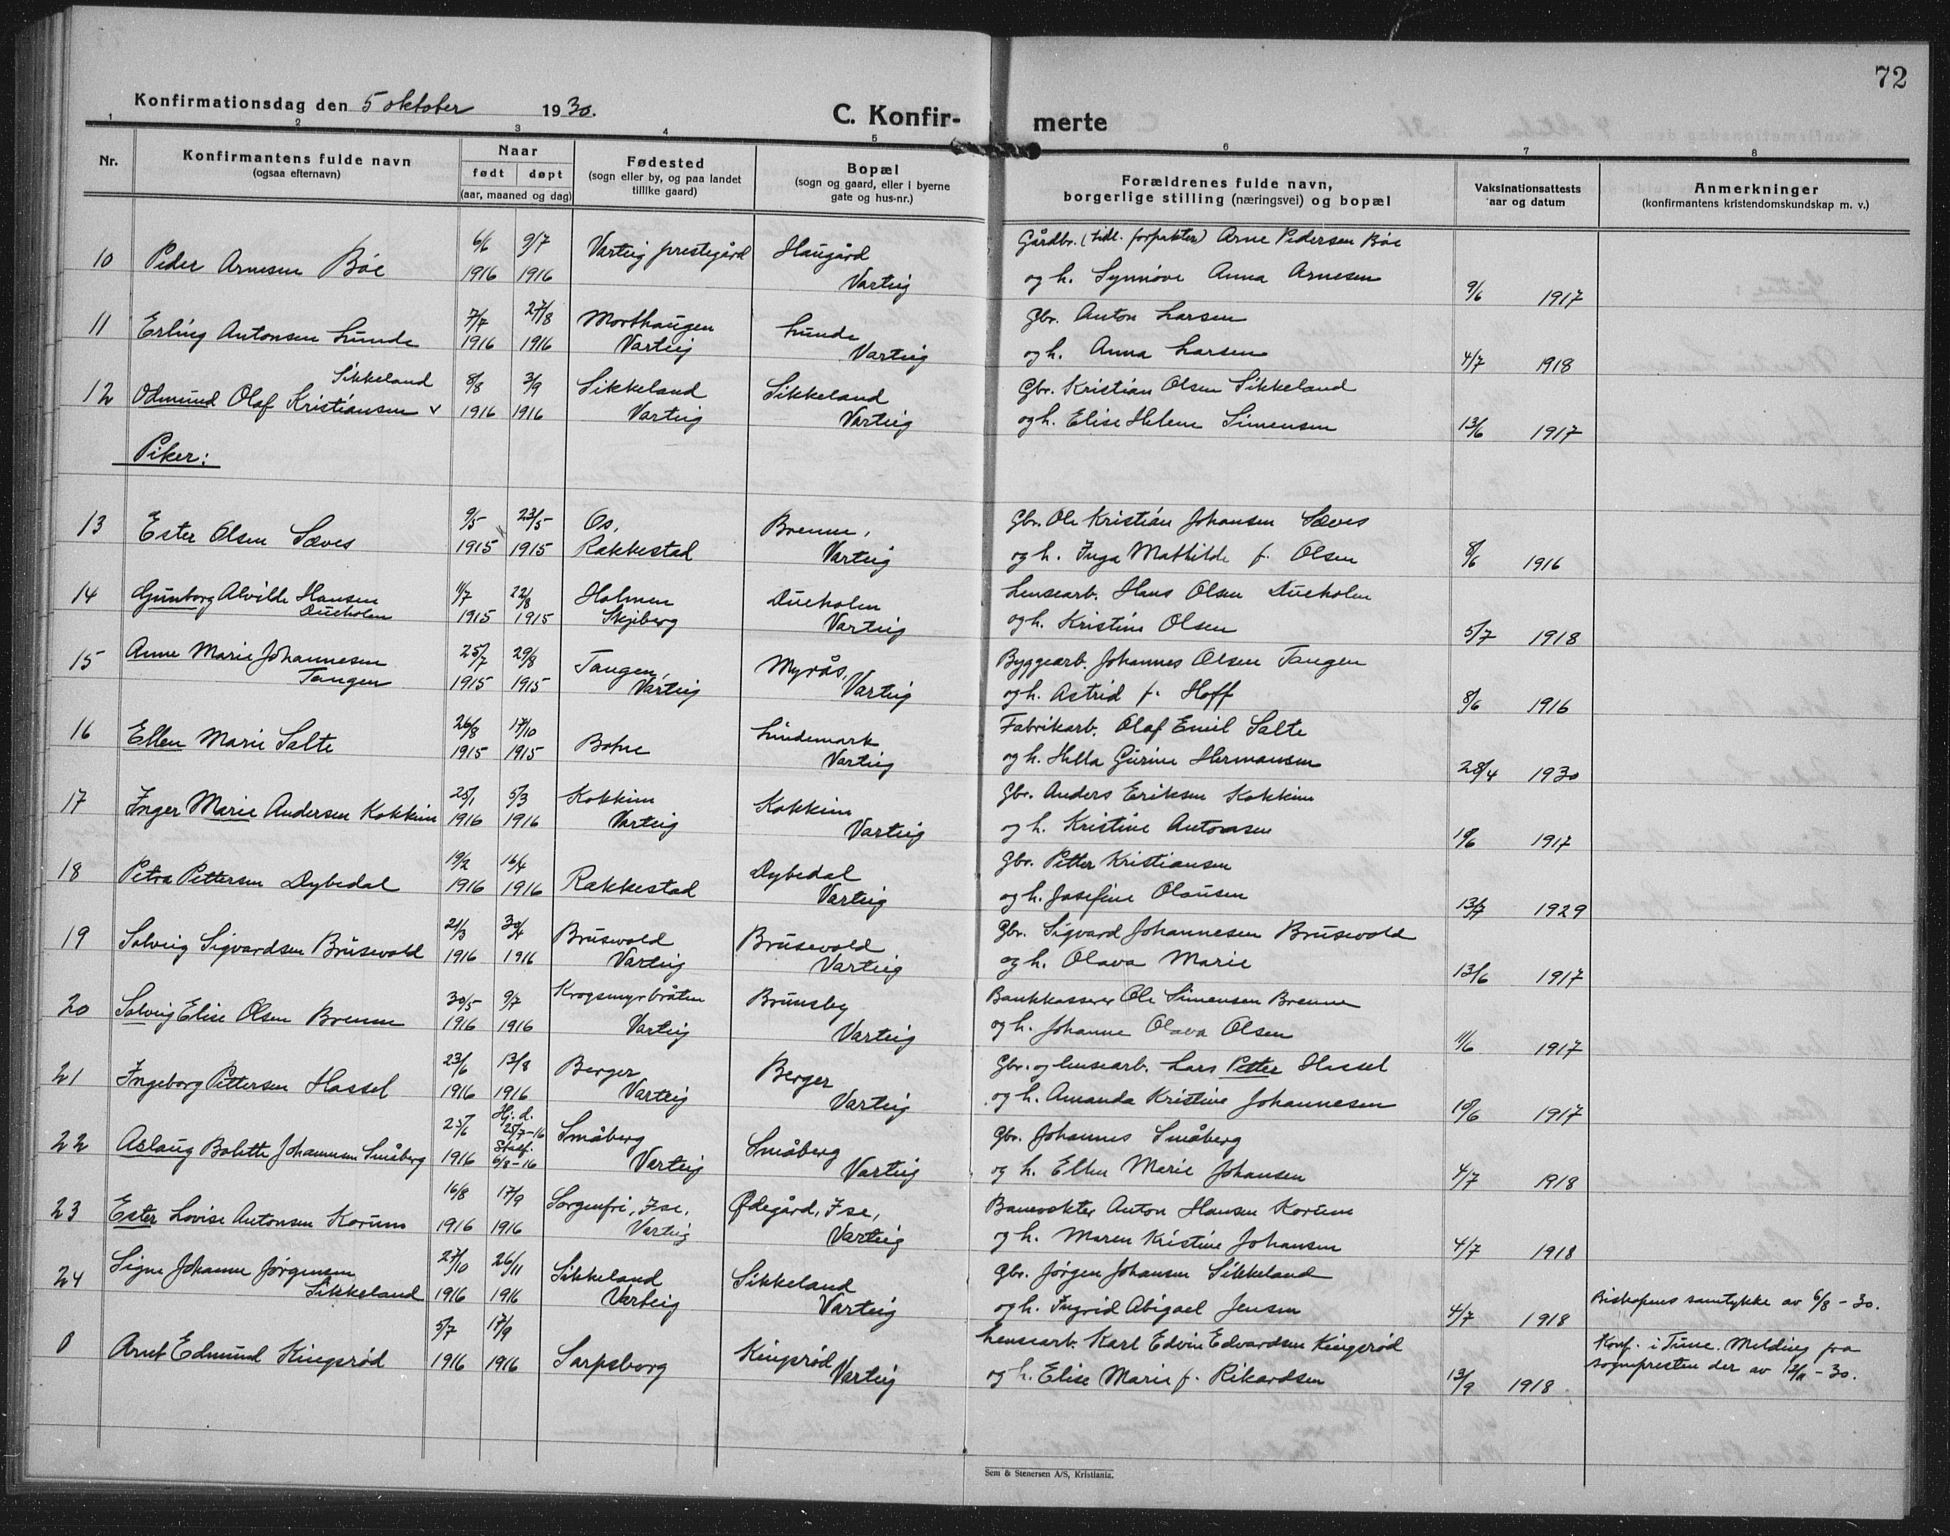 72
Konfirmationsdag den 5 oktober 1930.
C. Konfir- merte
1 2 3 4 5 6 7 8
Nr.
Konfirmantens fulde navn
(ogsaa efternavn)
Naar
født døpt
(aar, maaned og dag)
Fødested
(sogn eller by, og paa landet
tillike gaard)
Bopæl
(sogn og gaard, eller i byerne
gate og hus-nr.)
Forældrenes fulde navn,
borgerlige stilling (næringsvei) og bopæl
Vaksinationsattests
aar og datum
Anmerkninger
(konfirmantens kristendomskundskap m. v.)
6/6 9/7 Varteig prestegård Haugård Gårdbr. (tidl. forpakter) Arne Pedersen Bøe
10 Peder Arnesen Bøe 1916 1916 Varteig og h. Synnøve Anna Arnesen 9/6 1917
7/7 27/8 Morthaugen Lunde Gbr. Anton Larsen
11 Erling Antonsen Lunde 1916 1916 Varteig Varteig og h. Anna Larsen 4/7 1918
Sikkeland 8/8 3/9 Sikkeland Sikkeland Gbr. Kristian Olsen Sikkeland
12 Odmund Olaf Kristiansen v 1916 1916 Varteig Varteig og h. Elise Helene Simensen 13/6 1917
Piker:
9/5 23/5 Os, Brenne, Gbr. Ole Kristian Johansen Sæves
13 Ester Olsen Sæves 1915 1915 Rakkestad Varteig og h. Inga Mathilde f. Olsen 8/6 1916
14 Gunborg Alvilde Hansen 11/7 22/8 Holmen Dueholm Lensearb. Hans Olsen Dueholm
Dueholm 1915 1915 Skjeberg Varteig og h. Kristine Olsen 5/7 1918
15 Anne Marie Johannesen 25/7 29/8 Tangen, Myrås, Byggearb. Johannes Olsen Tangen
Tangen 1915 1915 Varteig Varteig og h. Astrid f. Hoff 8/6 1916
26/8 17/10 Lindemark Fabrikarb. Olaf Emil Salte
16 Ellen Marie Salte 1915 1915 Bohne Varteig og h. Helga Gurine Hermansen 28/4 1930
25/1 5/3 Kokkim Kokkim Gbr. Anders Eriksen Kokkim
17 Inger Marie Andersen Kokkim 1916 1916 Varteig Varteig og h. Kristine Antonsen 10/6 1917
19/2 16/4 Dybedal Gbr. Petter Kristiansen
18 Petra Pettersen Dybedal 1916 1916 Rakkestad Varteig og h. Josefine Olausen 13/7 1929
21/3 30/4 Brusevold Brusevold Gbr. Sigvard Johannesen Brusevold
19 Solveig Sigvardsen Brusevold 1916 1916 Varteig Varteig og h. Olava Marie 13/6 1917
30/5 9/7 Krogsmyrbråten Brunsby Bankkasserer Ole Simensen Brenne
20 Solveig Elise Olsen Brenne 1916 1916 Varteig Varteig og h. Johanne Olava Olsen 11/6 1917
23/6 13/8 Berger Berger Gbr. og lensearb. Lars Petter Hassel
21 Ingeborg Pettersen Hassel 1916 1916 Varteig Varteig og h. Amanda Kristine Johannesen 10/6 1917
25/6 Hj. d. 25/7-16 Småberg Småberg Gbr. Johannes Småberg
22 Aslaug Bolette Johannsen Småberg 1916 Stadf. 6/8-16 Varteig Varteig og h. Ellen Marie Johansen 4/7 1918
16/8 17/9 Sorgenfri, Ise, Ødegård, Ise, Banevokter Anton Hansen Korum
23 Ester Lovise Antonsen Korum 1916 1916 Varteig Varteig og h. Maren Kristine Johansen 4/7 1918
Signe Johanne Jørgensen 27/10 26/11 Sikkeland Sikkeland Gbr. Jørgen Johansen Sikkeland
24 Sikkeland 1916 1916 Varteig Varteig og h. Ingrid Abigael Jensen 4/7 1918 Biskopens samtykke av 6/8-30.
5/7 17/9 Kingsrød Lensearb. Karl Edvin Edvardsen Kingsrød Konf. i Tune. Melding fra
0 Arnt Edmund Kingsrød 1916 1916 Sarpsborg Varteig og h. Elise Marie f. Rikardsen 13/9 1918 sognepresten der av 12/11-30.
Sem & Stenersen A/S, Kristiania.